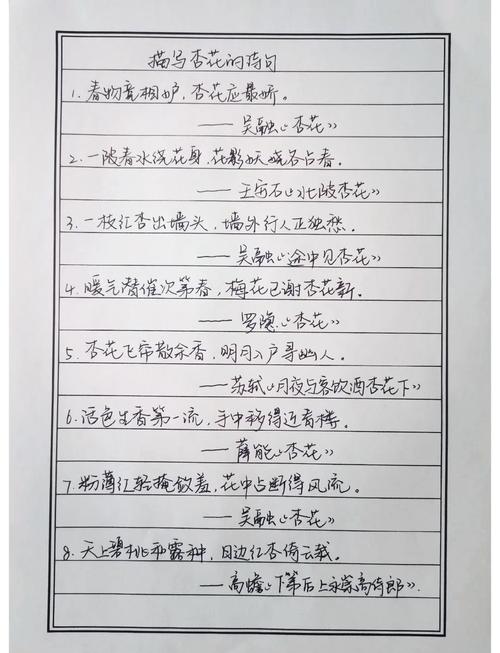 描写杏花的诗句
1. 春物竞相妒，杏花应最娇。
——吴融《杏花》
2. 一陂春水绕花身，花影妖娆各占春。
——王安石《北陂杏花》
3. 一枝红杏出墙头，墙外行人正独愁。
——吴融《途中见杏花》
4. 暖气潜催次第春，梅花已谢杏花新。
——罗隐《杏花》
5. 杏花飞帘散余香，明月入户寻幽人。
——苏轼《月夜与客饮酒杏花下》
6. 活色生香第一流，手中移得近青楼。
——薛能《杏花》
7. 粉薄红轻掩敛羞，花中占断得风流。
——吴融《杏花》
8. 天上碧桃和露种，日边红杏倚云栽。
——高蟾《下第后上永崇高侍郎》